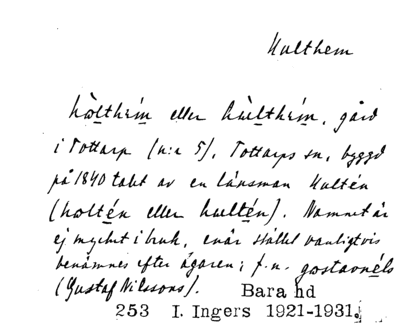 Hulthem
hòlthém eller hùlthém, gård
i Tottarp (n:r 5), Tottarps sn, byggd
på 1840 talet av en länsman Hultén
(holtén eller hultén). Namnet är
ej mycket i bruk, enär stället vanligtvis
benämnes efter ägaren; f.n. gostavnéls
(Gustaf Nilssons).
Bara hd
253 I. Ingers 1921-1931.